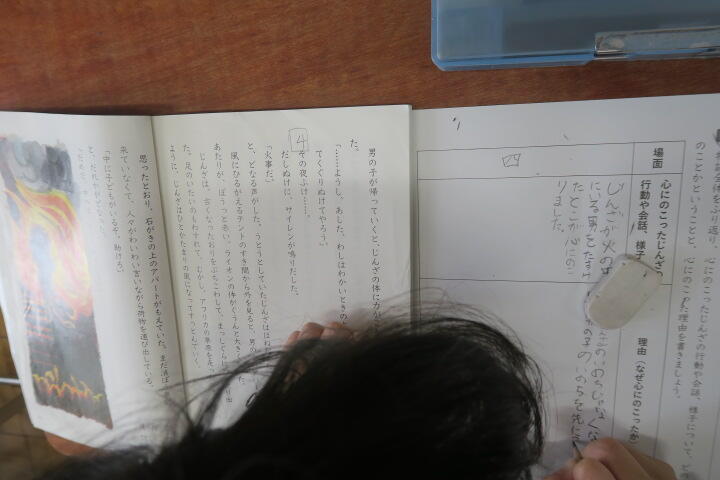 る体をふり返り、心にのこったじんざの行動や会話、様子について、ど
のことかということと、心にのこった理由を書きましょう。
場面
心にのこったじんざの
行動や会話、様子
理由（なぜ心にのこったか）
四
じんざが火の中
にいる男をたすけ
たことが心にのこ
りました。
のいのちじゃなく
子のいのちを先に
男の子が帰っていくと、じんざの体に力が
た。
「……ようし、あした、わしはわかいときの
てくぐりぬけてやろう。」
4
その夜ふけ……。
だしぬけに、サイレンが鳴りだした。
「火事だ。」
と、どなる声がした。うとうとしていたじんざははね
風にひるがえるテントのすき間から外を見ると、男の
あたりが、ぼうっと赤い。ライオンの体がぐうんと大き
じんざは、古くなったおりをぶちこわして、まっしぐら
た。足のいたいのもわすれて、むかし、アフリカの草原を走っ
ように、じんざはひとかたまりの風になってすっとんでいく。
思ったとおり、石がきの上のアパートがもえていた。まだ消ぼう
来ていなくて、人々がわいわい言いながら荷物を運び出している。
「中に子どもがいるぞ。助けろ。」
と、だれかがどなった。
「だめだ。